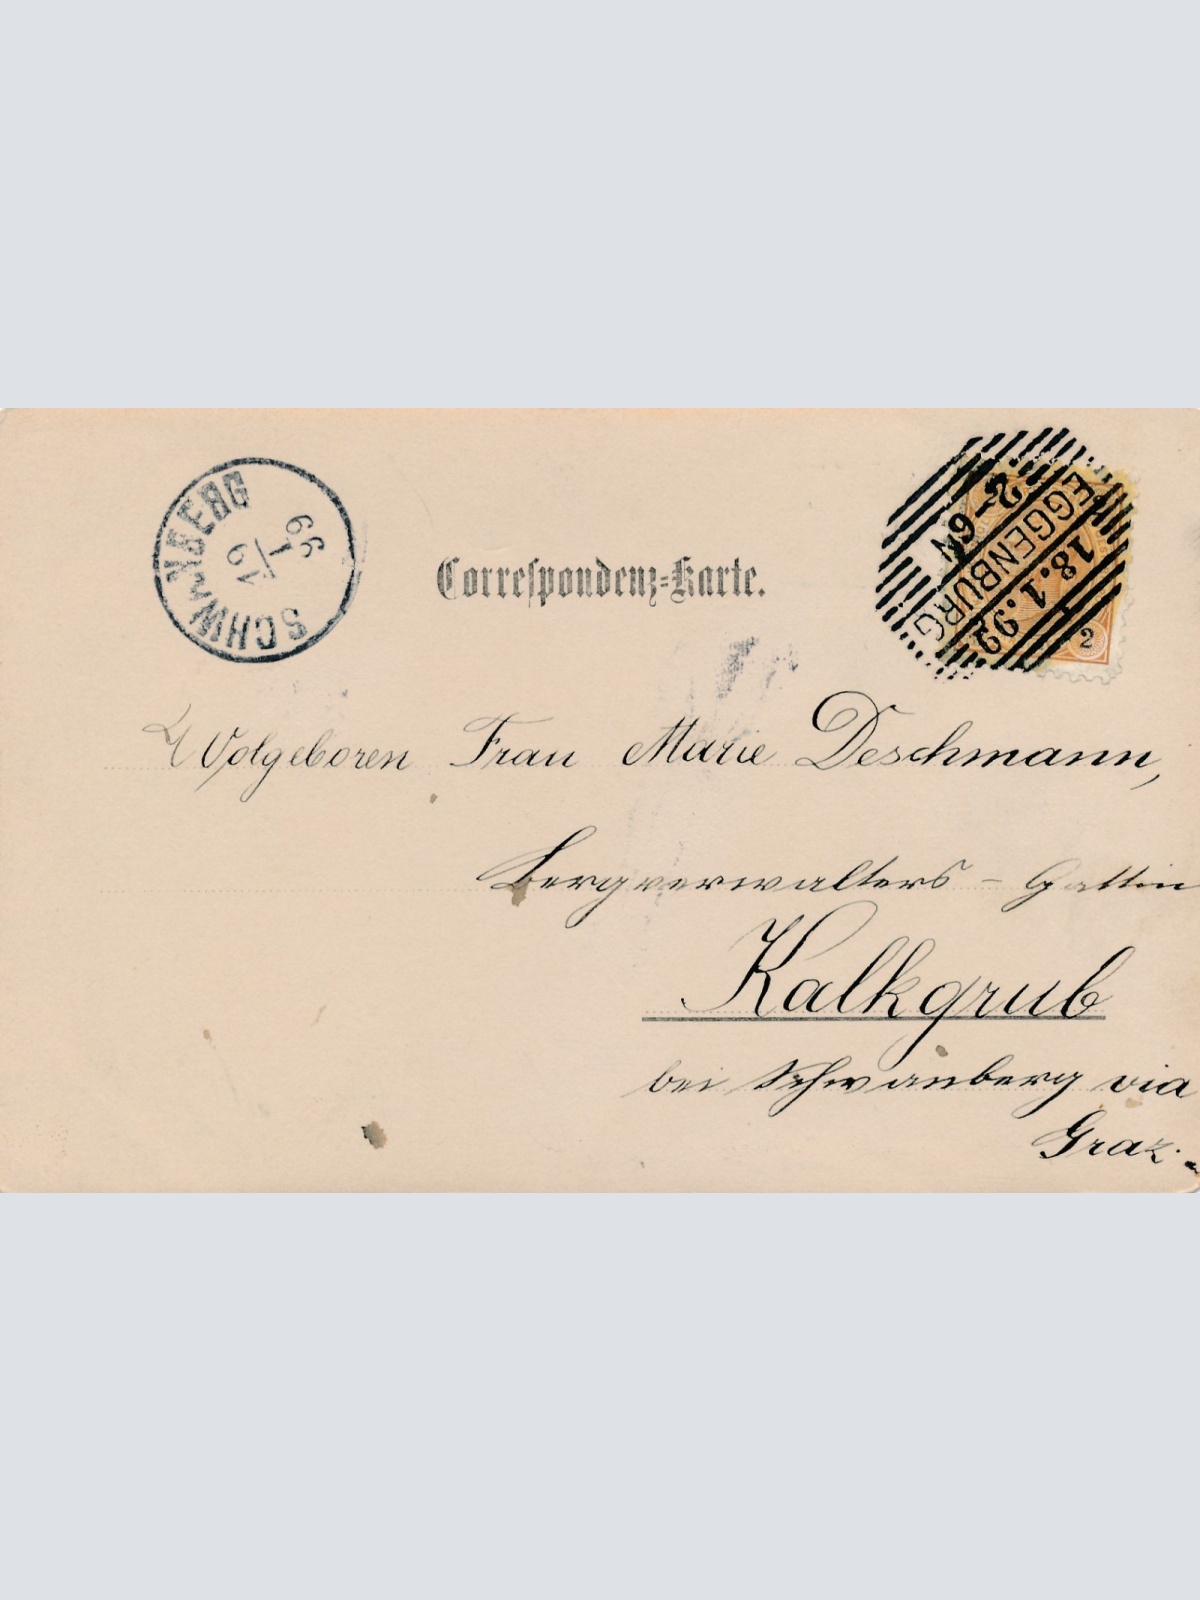 SCHWANBERG
19
1
99
Correspondenz=Karte.
EGGENBURG
18.1.99
2-6N
2
Wolgeboren Frau Marie Deschmann,
Bergverwalters - Gattin
Kalkgrub
bei Schwanberg via
Graz.